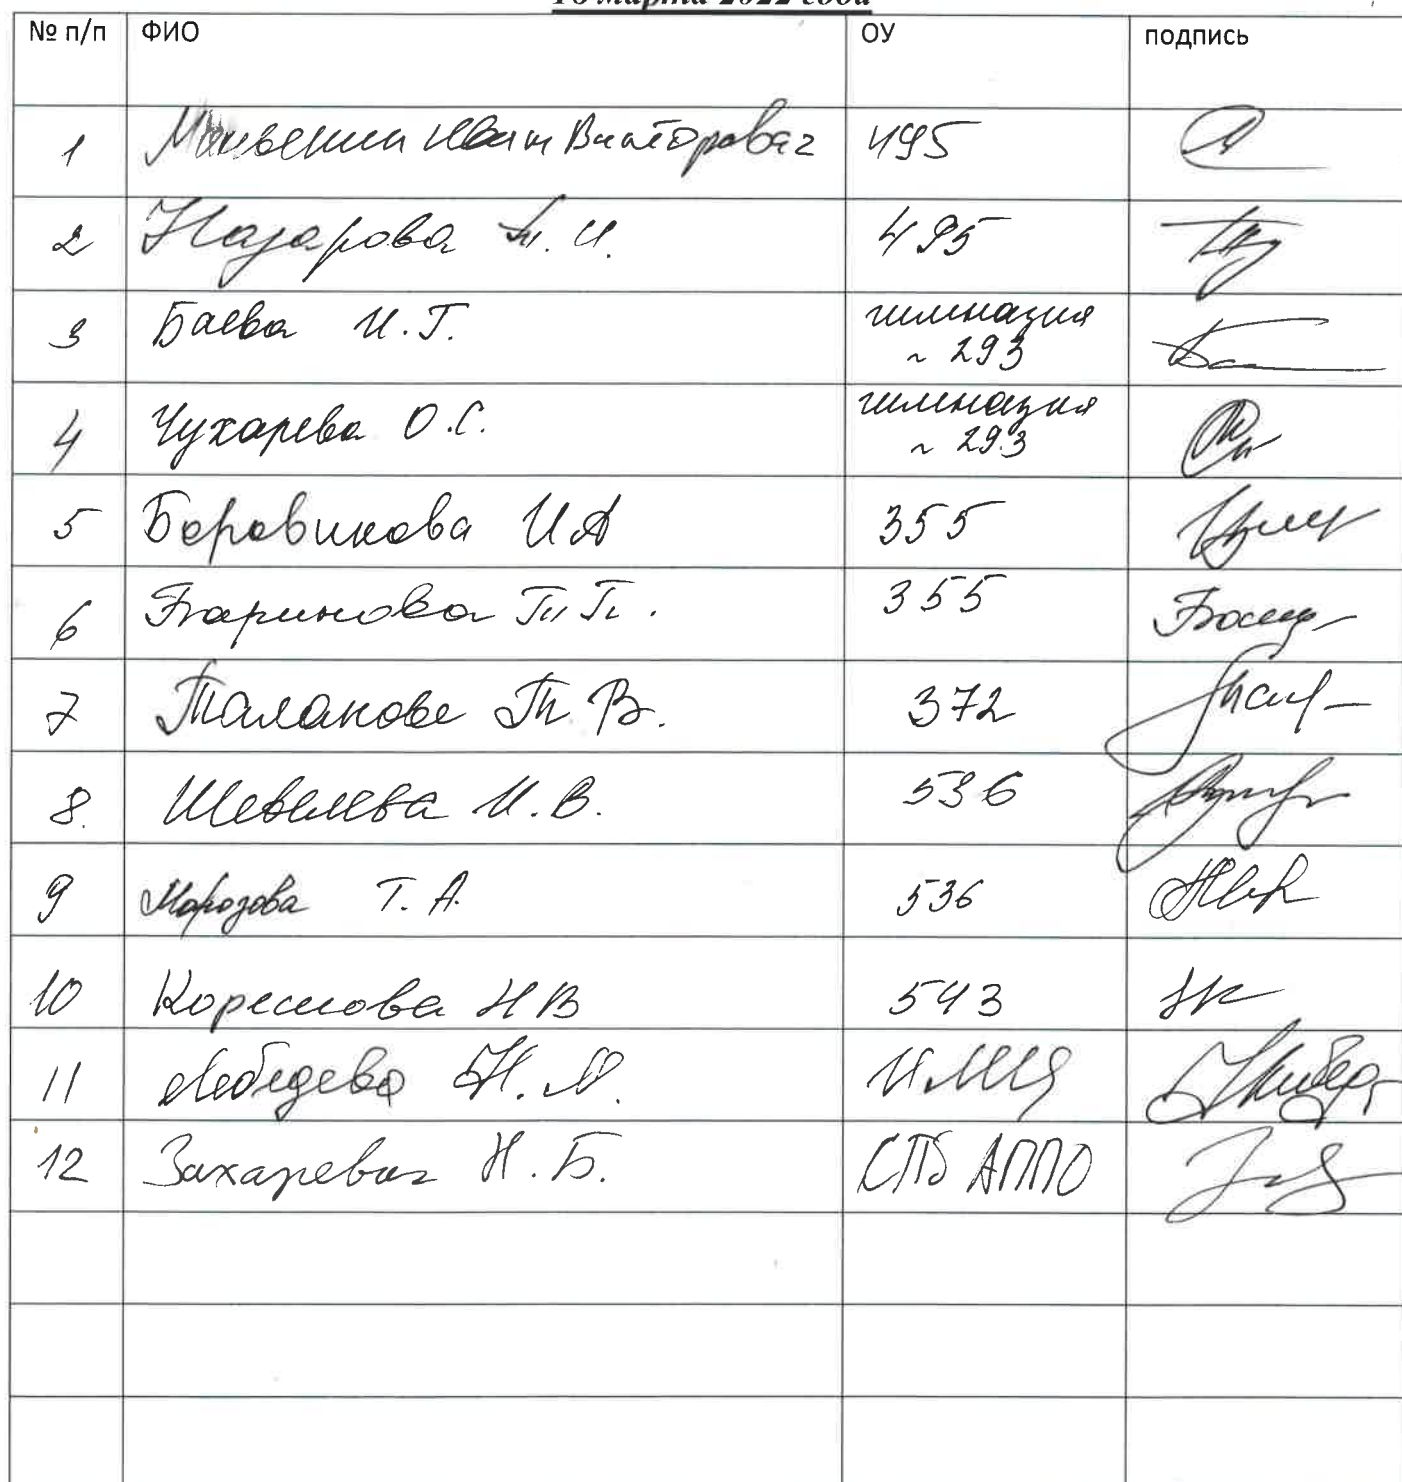 марта 2022 года
№ п/п ФИО ОУ подпись
1 Иван Викторович 495
2 Назарова Т. И. 495
3 Баева И. Г. гимназия
~ 293
4 Чухарева О. С. гимназия
~ 293
5 Боровикова И А 355
6 Баринова Т. П. 355
7 Таланова Т. В. 372
8. Шевелева И. В. 536
9 Морозова Т. А. 536
10 Н В 543
11 Лебедева Н. 
12 Захаревич Н. Б. СПб АППО